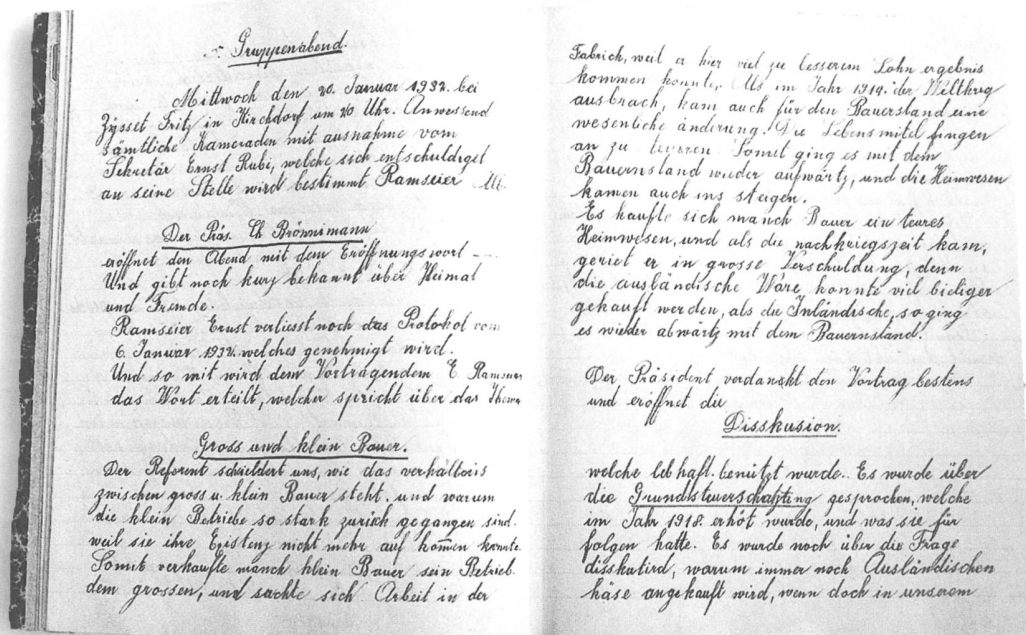 5. Gruppenabend.
Mittwoch den 20. Januar 1932. bei
Zÿsset Fritz in Kirchdorf um 20 Uhr. Anwessend
sämtliche Kameraden mit ausnahme vom
Sekretär Ernst Rubi, welche sich entschuldiget
an seine Stelle wird bestimmt Ramseier
Der Präs. Ch Brönnimann
eröffnet den Abend mit dem Eröffnungswort
Und gibt noch kurz bekannt über Heimat
und Fremde.
Ramseier Ernst verliesst noch das Protokol vom
6. Januar 1932. welches genehmigt wird.
Und so mit wird dem Vortragendem E. Ramseier
das Wort erteilt, welcher spricht über das Thema
Gross und klein Bauer.
Der Referent schieldert uns, wie das verhältnis
zwischen gross u. klein Bauer steht. und warum
die klein Betriebe so stark zurück gegangen sind.
weil sie ihre Existenz nicht mehr auf kommen konnte.
Somit verkaufte manch klein Bauer sein Betrieb.
dem grossen, und suchte sich Arbeit in der
Fabrich, weil er hier viel zu besserem Lohn ergebnis
kommen konnte. Als im Jahr 1914. der Weltkrieg
ausbrach, kam auch für den Bauerstand eine
wesenliche änderung. Die Lebensmitel fingen
an zu Somit ging es mit dem
Bauernstand wieder aufwärtz, und die Heimwesen
kamen auch ins steigen.
Es kaufte sich manch Bauer ein teures
Heimwesen, und als die nachkriegszeit kam,
geriet er in grosse Verschuldung, denn
die ausländische Ware konnte viel bieliger
gekauft werden, als die Inländische, so ging
es wieder abwärtz mit dem Bauernstand.
Der Präsident verdankt den Vortrag bestens
und eröffnet die
Disskusion.
welche lebhaft. benützt wurde.. Es wurde über
die Grundsteuerschatzung gesprochen, welche
im Jahr 1918. erhöt wurde, und was sie für
folgen hatte. Es wurde noch über die Frage
disskutird, warum immer noch Ausländischen
käse angekauft wird, wenn doch in unserem